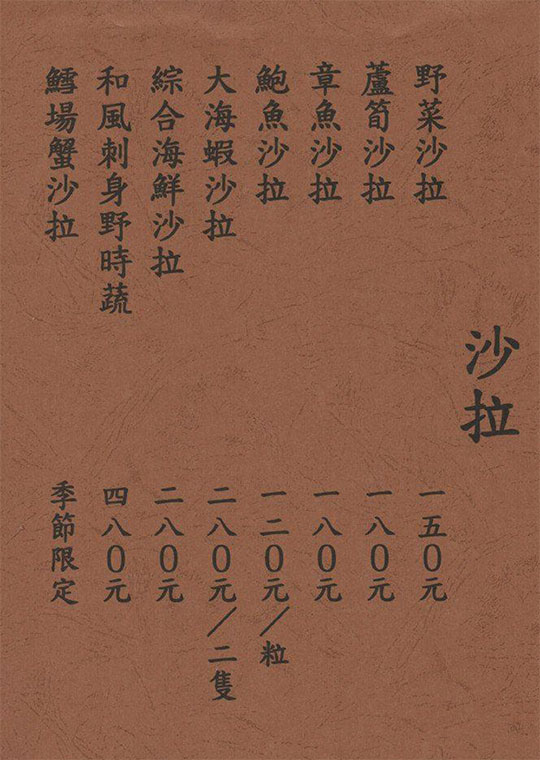 沙拉
野菜沙拉 一五0元
蘆筍沙拉 一八0元
章魚沙拉 一八0元
鮑魚沙拉 一二0元/粒
大海蝦沙拉 二八0元/二隻
綜合海鮮沙拉 二八0元
和風刺身野時蔬 四八0元
鱈場蟹沙拉 季節限定